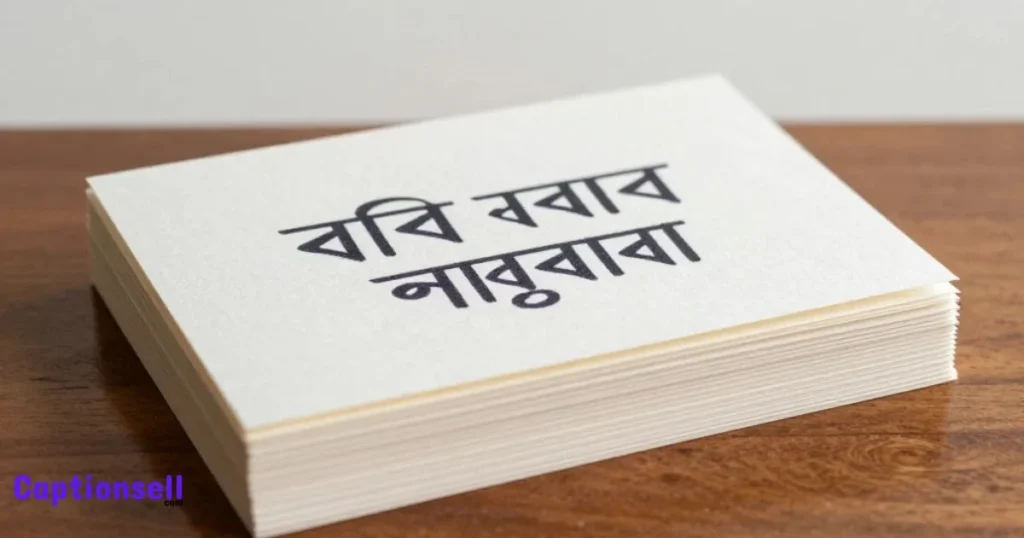 ববি
নাবুবাবা
Captionsell
.com